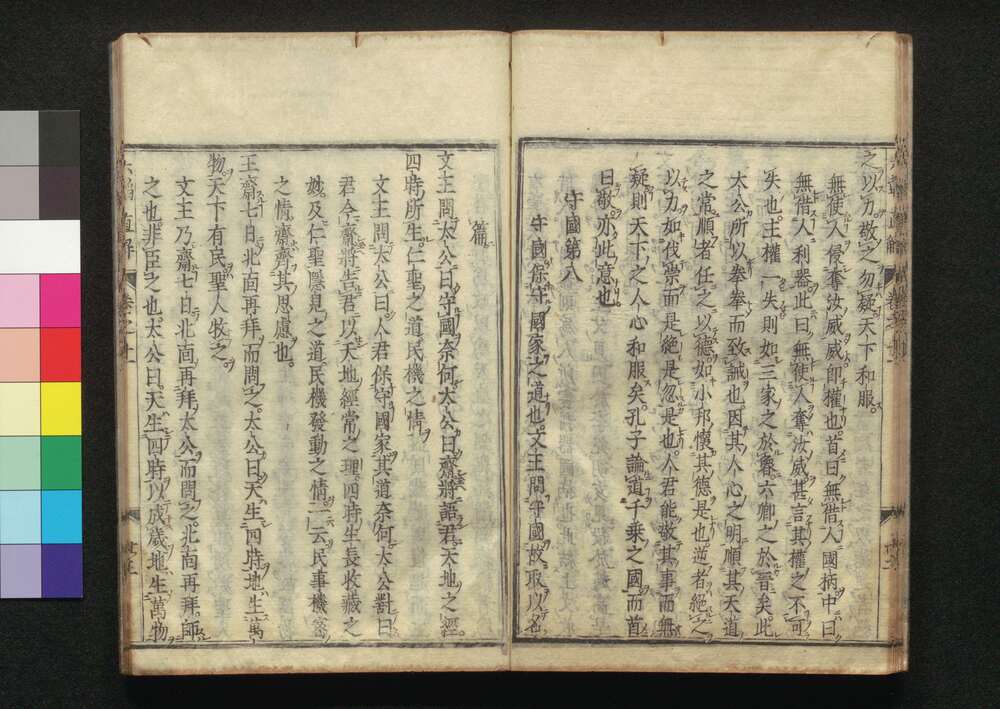 之以力敬之勿疑天下和服。
無使人侵奪汝威威即權也。首曰無借人國柄中曰
無借人利器此曰無使人奪汝威甚言其權之不可
失也。主權一失則如三家之於魯六卿之於晉矣。此
太公所以拳拳而致誠也因其人心之明順其天道
之常順者任之以德。如小邦懷其德是也逆者絕之
以力如伐崇而是絕是忽是也。人君能敬其事而無
疑則天下之人心和服矣孔子論道千乘之國而首
曰敬亦此意也
守國第八
守國保守國家之道也文王問守國故取以名
篇
文王問太公曰守國奈何太公曰齋將語君天地之經。
四時所生。仁聖之道民機之情
文王問太公曰人君保守國家其道奈何太公對曰
君今齋將告君以天地經常之理。四時生長收藏之
妙。及仁聖隱見之道民機發動之情一云民事機密
之情齋齋其思慮也。
王齋七日北面再拜而問之。太公曰天生四時地生萬
物。天下有民聖人牧之。
文王乃齋七日北面再拜太公而問之北面再拜師
之也非臣之也太公曰天生四時以成歲地生萬物
六韜直解 卷之上